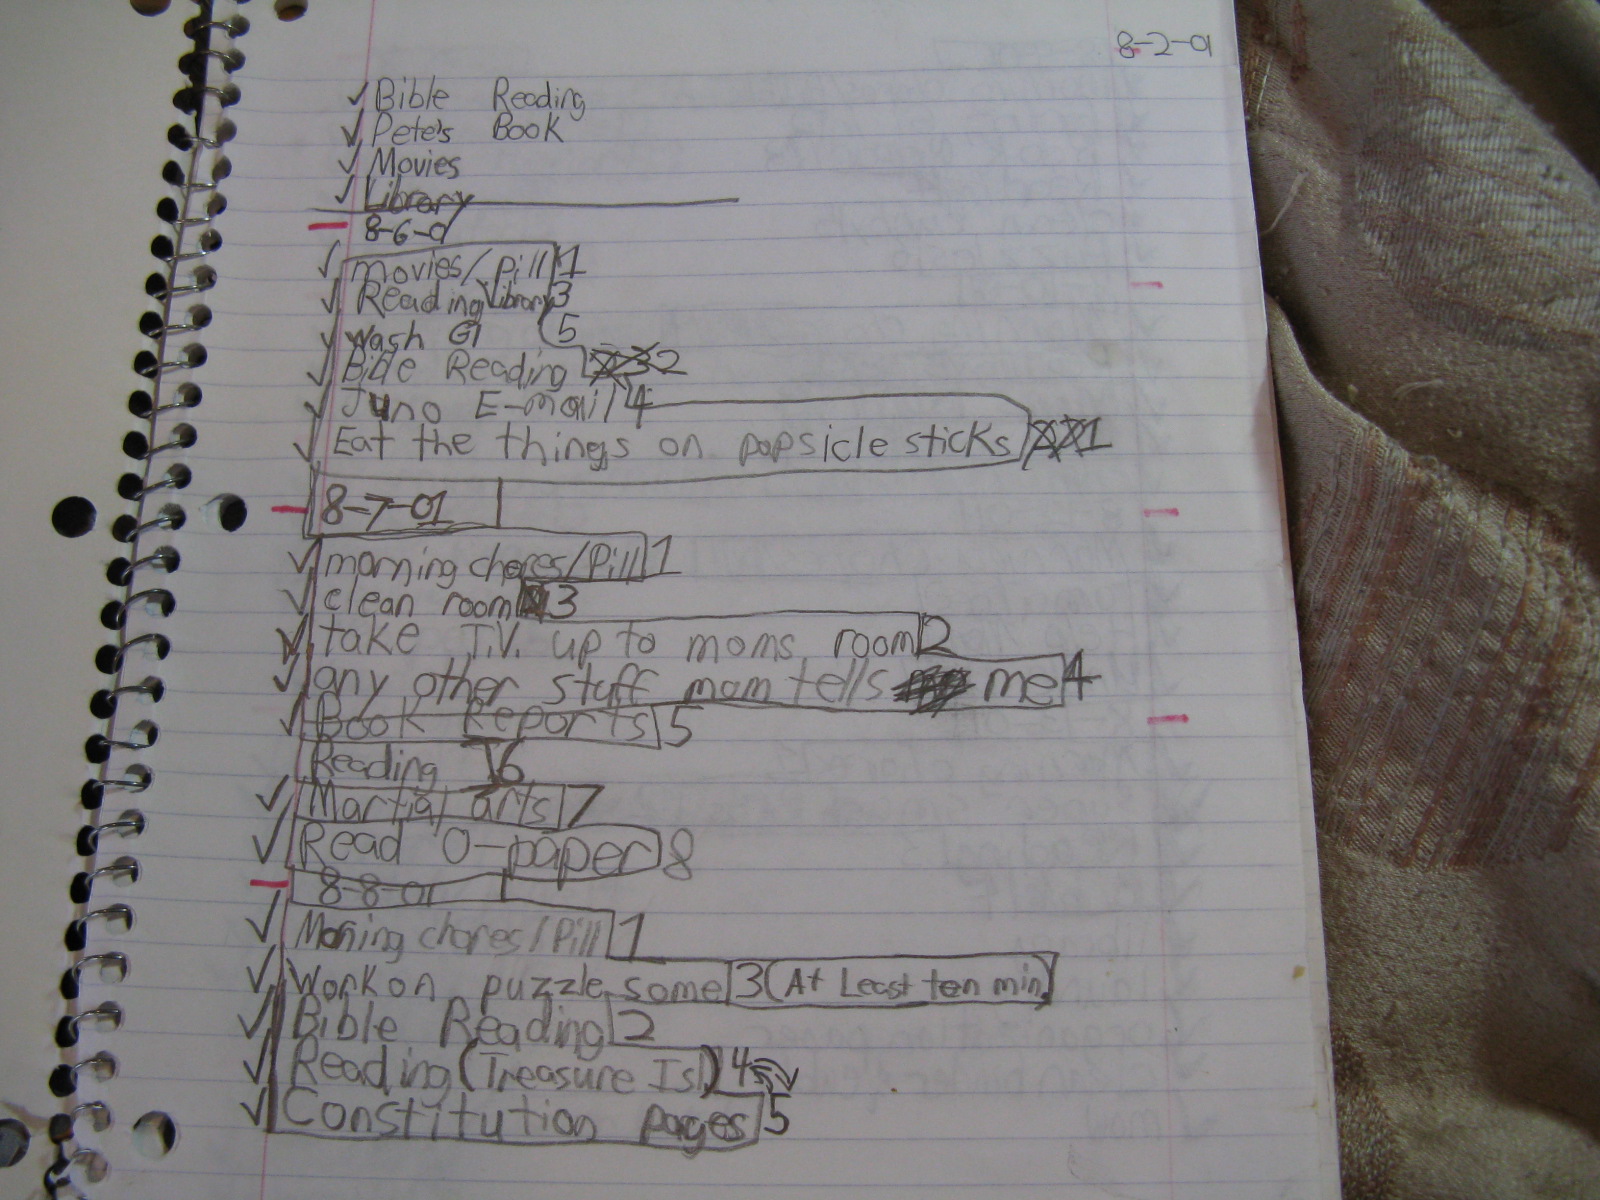 8-2-01
✓ Bible Reading
✓ Pete's Book
✓ Movies
✓ Library
8-6-01
✓ movies/pill 1
✓ Reading/library 3
✓ wash GI 5
✓ Bible Reading 2
✓ Juno E-mail 4
✓ Eat the things on popsicle sticks 1
8-7-01
✓ morning chores/Pill 1
✓ clean room 3
✓ take T.V. up to moms room 2
✓ any other stuff mom tells me 4
✓ Book Reports 5
Reading 6
✓ Martial arts 7
✓ Read O-paper 8
8-8-01
✓ Morning chores/Pill 1
✓ Work on puzzle some 3 (At Least ten min)
✓ Bible Reading 2
✓ Reading (Treasure Isl) 4
✓ Constitution pages 5